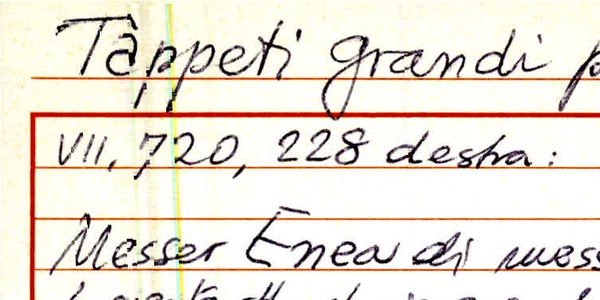 Tàppeti grandi
VII, 720, 228 destra:
Messer Enea di mess